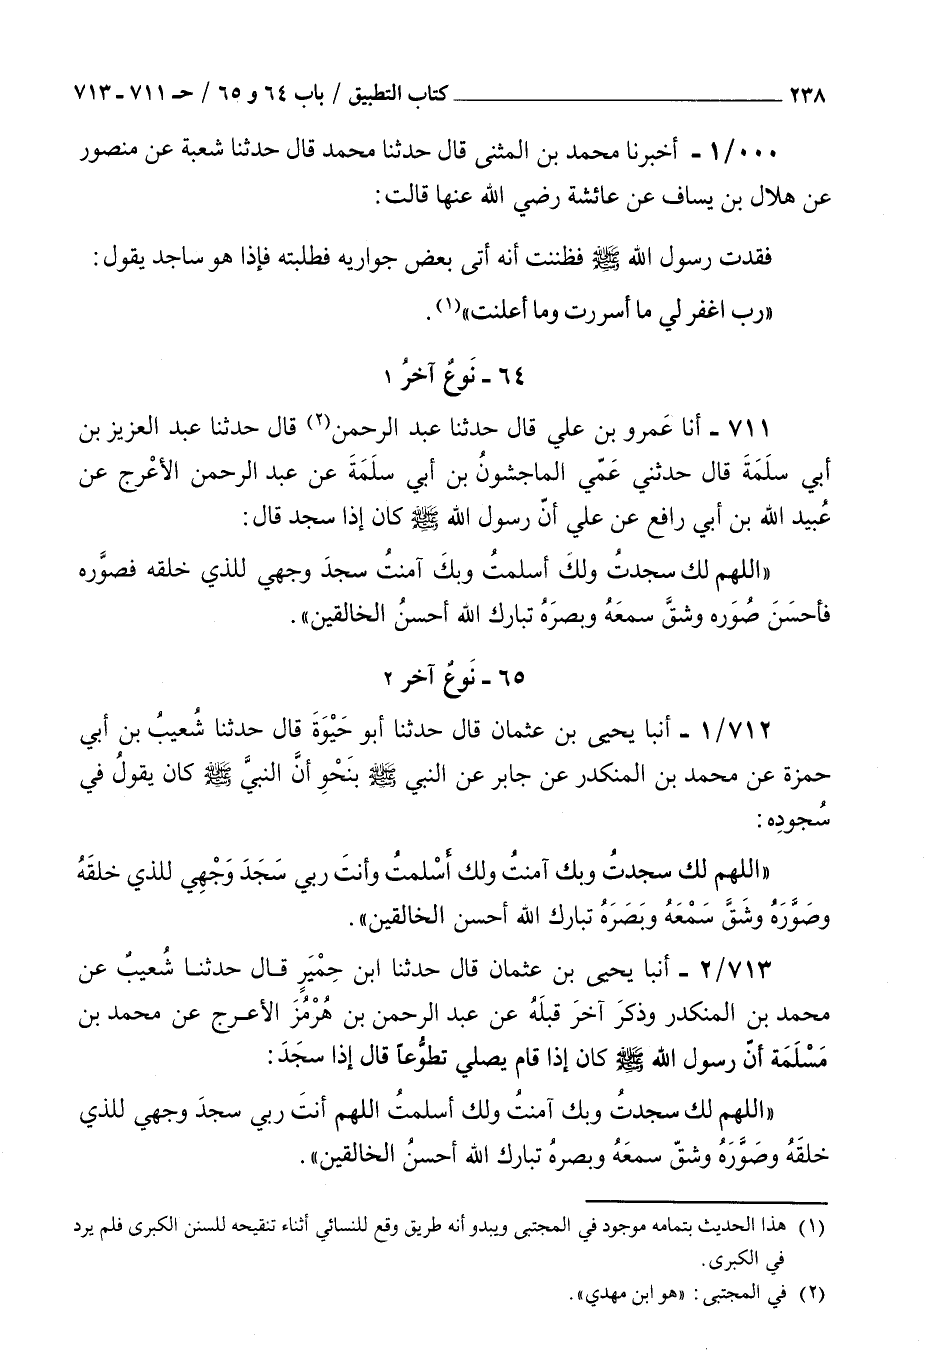 ٢٣٨ ــــــــ كتاب التطبيق / باب ٦٤ و ٦٥ / حـ ٧١١ - ٧١٣
١/٠٠٠ - أخبرنا محمد بن المثنى قال حدثنا محمد قال حدثنا شعبة عن منصور
عن هلال بن يساف عن عائشة رضي الله عنها قالت:
فقدت رسول الله ﷺ فظننت أنه أتى بعض جواريه فطلبته فإذا هو ساجد يقول:
«رب اغفر لي ما أسررت وما أعلنت»(١).
٦٤ - نَوعٌ آخرُ ١
٧١١ - أنا عَمرو بن علي قال حدثنا عبد الرحمن(٢) قال حدثنا عبد العزيز بن
أبي سلَمَةَ قال حدثني عَمّي الماجشونُ بن أبي سلَمَةَ عن عبد الرحمن الأعْرج عن
عُبيد الله بن أبي رافع عن علي أنّ رسول الله ﷺ كان إذا سجد قال:
«اللهم لك سجدتُ ولكَ أسلمتُ وبكَ آمنتُ سجدَ وجهي للذي خلقه فصوَّره
فأحسَنَ صُوَره وشقَّ سمعَهُ وبصرَهُ تبارك الله أحسنُ الخالقين».
٦٥ - نَوعٌ آخر ٢
١/٧١٢ - أنبا يحيى بن عثمان قال حدثنا أبو حَيْوَةَ قال حدثنا شُعيبُ بن أبي
حمزة عن محمد بن المنكدر عن جابر عن النبي ﷺ بنَحْوِ أنَّ النبيَّ ﷺ كان يقولُ في
سُجودِه:
«اللهم لك سجدتُ وبك آمنتُ ولك أَسْلمتُ وأنتَ ربي سَجَدَ وَجْهِي للذي خلقَهُ
وصَوَّرَهُ وشَقَّ سَمْعَهُ وبَصَرَهُ تبارك الله أحسن الخالقين».
٢/٧١٣ - أنبا يحيى بن عثمان قال حدثنا ابن حِمْيَرٍ قال حدثنا شُعيبٌ عن
محمد بن المنكدر وذكرَ آخرَ قبلَهُ عن عبد الرحمن بن هُرْمُزَ الأعرج عن محمد بن
مَسْلَمَة أنّ رسول الله ﷺ كان إذا قام يصلي تطوُّعاً قال إذا سجَدَ:
«اللهم لك سجدتُ وبك آمنتُ ولك أسلمتُ اللهم أنتَ ربي سجدَ وجهي للذي
خلقَهُ وصَوَّرَهُ وشقّ سمعَهُ وبصرهُ تبارك الله أحسنُ الخالقين».
(١) هذا الحديث بتمامه موجود في المجتبى ويبدو أنه طريق وقع للنسائي أثناء تنقيحه للسنن الكبرى فلم يرد
في الكبرى.
(٢) في المجتبى: «هو ابن مهدي».